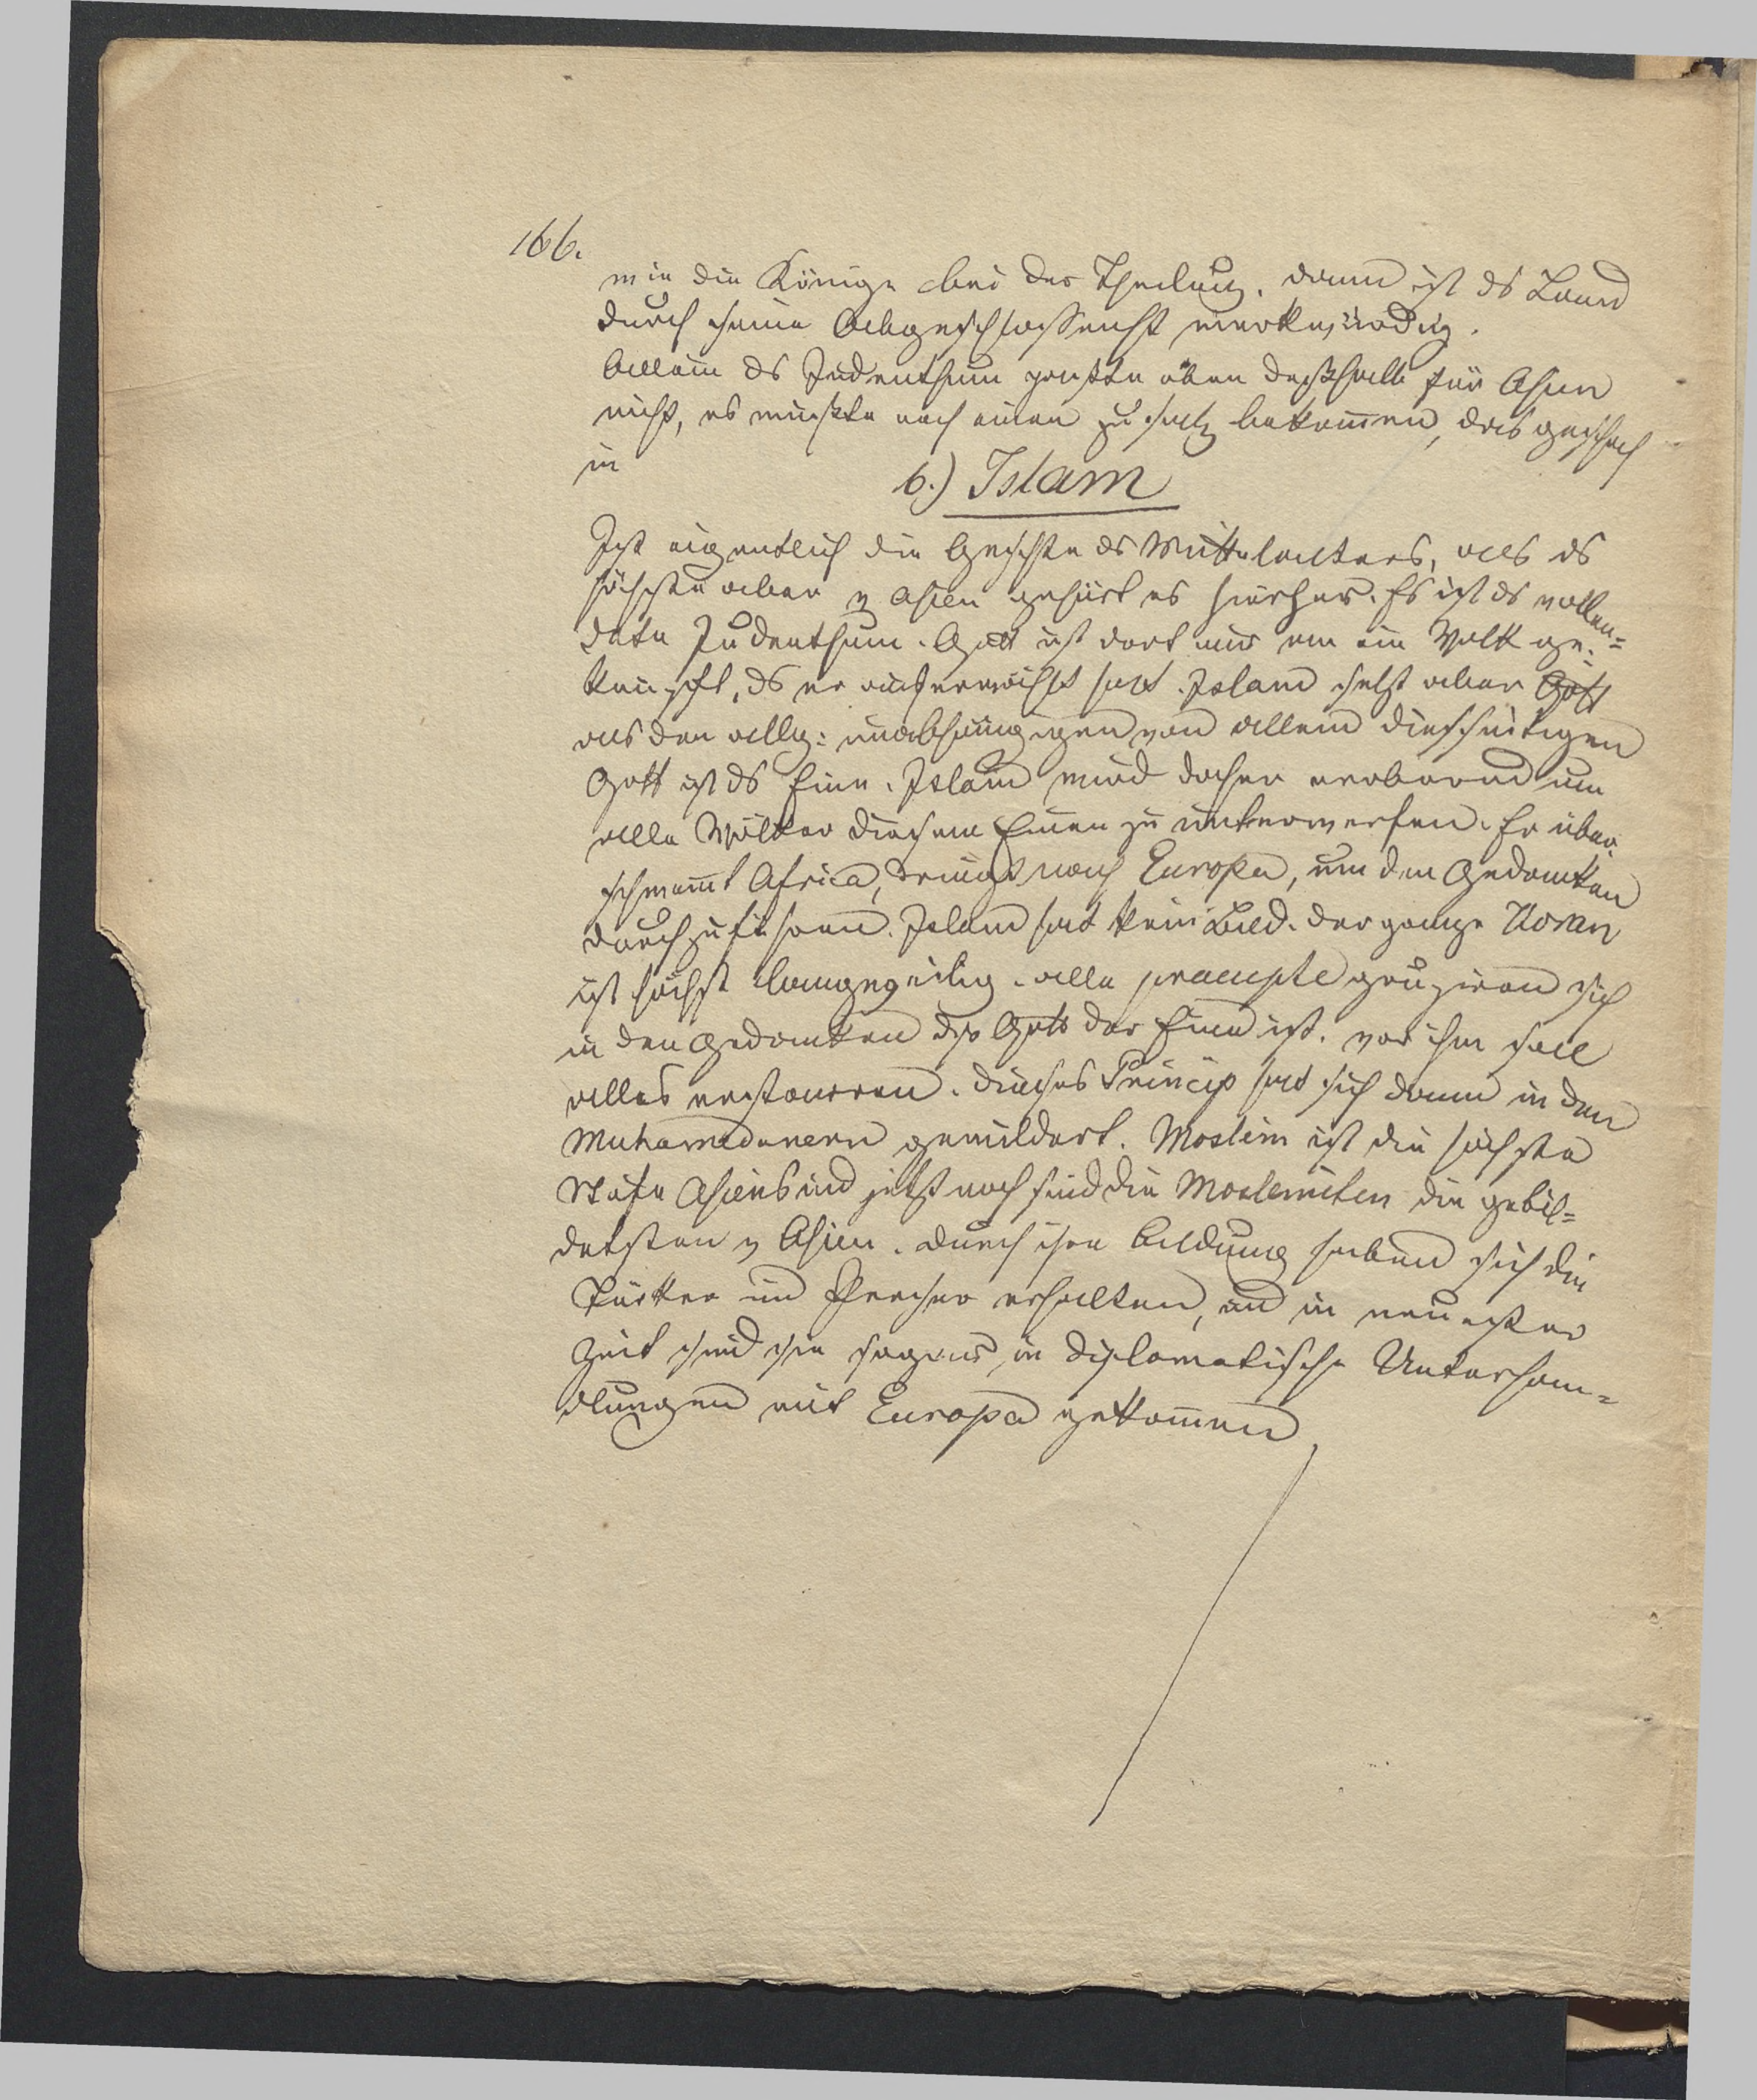 166.
wie die Könige bei der Theilung. dann ist ds Land
durch seine Abgeschlossenht merkwürdig.
Allein ds Judenthum paßte eben deßhalb für Asien
nicht, es mußte noch einen Zusatz bekom̄en, das geschah
in
6.) Islam
Ist eigentlich die Geschte ds Mittelalters, als ds
höchste aber v Asien gehört es hierher. Es ist ds vollen=
dete Judenthum. Gott ist dort nur an ein Volk ge=
knüpft, ds er auserwählt hat. Islam selbst aber Gott
als den allg: unabhängigen von allem diesseitigen
Gott ist ds Eine. Islam wird daher erobernd um
alle Völker diesem Einen zu unterwerfen. Er über
schwem̄t Africa, dringt nach Europa, um den Gedanken
durchzuführen. Islam hat kein Bild. der ganze Koran
ist höchst langweilig. alle praecepte gruppiren sich
in den Gedanken dß Gott der Eine ist. vor ihm soll
alles erstarren. dieses Princip hat sich dann in den
Muhamedanern gemildert. Moslim ist die höchste
Stufe Asiens und jetzt noch sind die Moslemiten die gebil=
detsten v Asien. durch ihre Bildung haben sich die
Türken und Perser erhalten, und in neuester
Zeit sind sie sogar in diplomatische Unterhan=
dlungen mit Europa gekom̄en